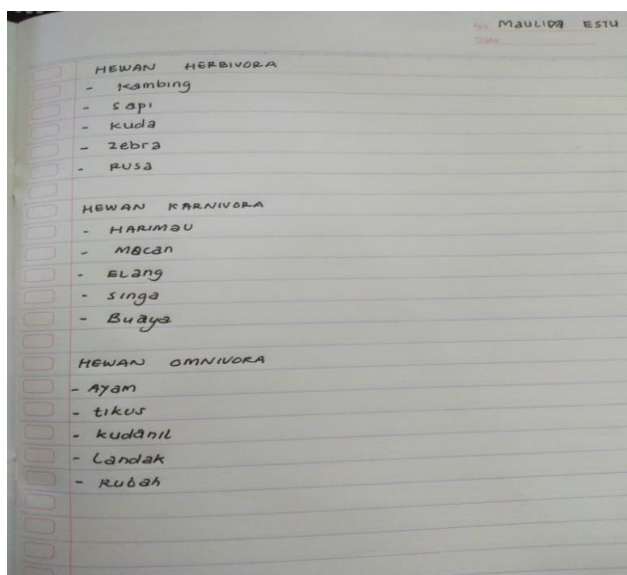 No. MAULIDA ESTU
Date
HEWAN HERBIVORA
- Kambing
- sapi
- kuda
- zebra
- Rusa
HEWAN KARNIVORA
- HARIMAU
- Macan
- ELang
- singa
- Buaya
HEWAN OMNIVORA
- Ayam
- tikus
- kudanil
- Landak
- Rubah